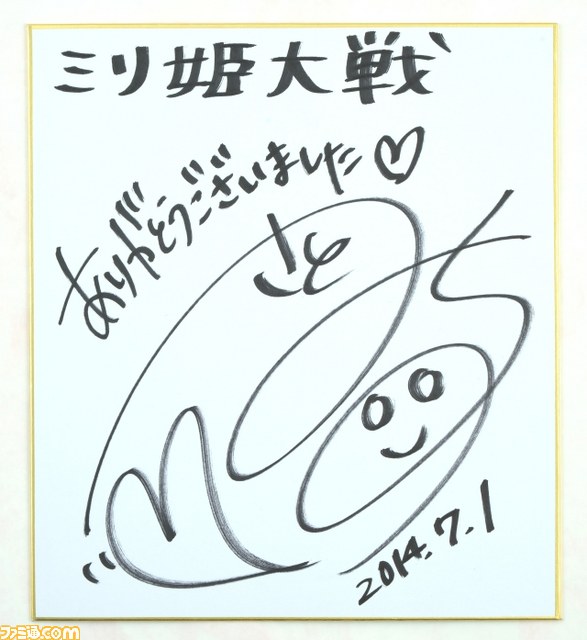 ミリ姫大戦
ありがとうございました♡
さと
2014.7.1
ファミ通.com